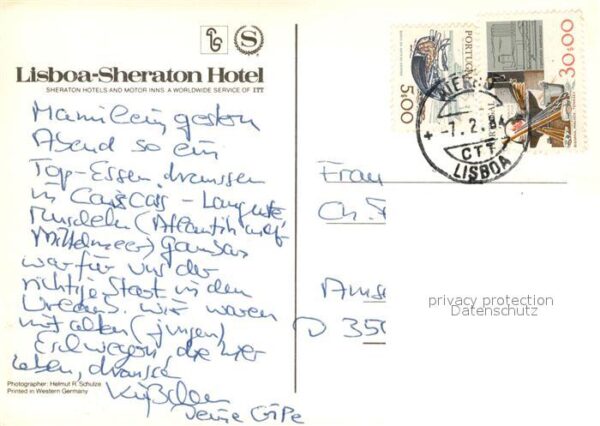 Lisboa-Sheraton Hotel
SHERATON HOTELS AND MOTOR INNS. A WORLDWIDE SERVICE OF ITT
Mamilein gestern
Abend so ein
Top-Essen draussen
in Cascais - Languste,
Muscheln (Atlantik auf
Mittelmeer) Gambas
war für uns der
richtige Start in den
Urlaub. Wir waren
mit alten (jungen)
Eschwegern, die hier
leben, draussen
Küßchen
Deine
Photographer: Helmut R. Schulze
Printed in Western Germany
PORTUGAL
5$00
30$00
-7.2.84
CTT
LISBOA
Frau
Ch.
D 350
privacy protection
Datenschutz